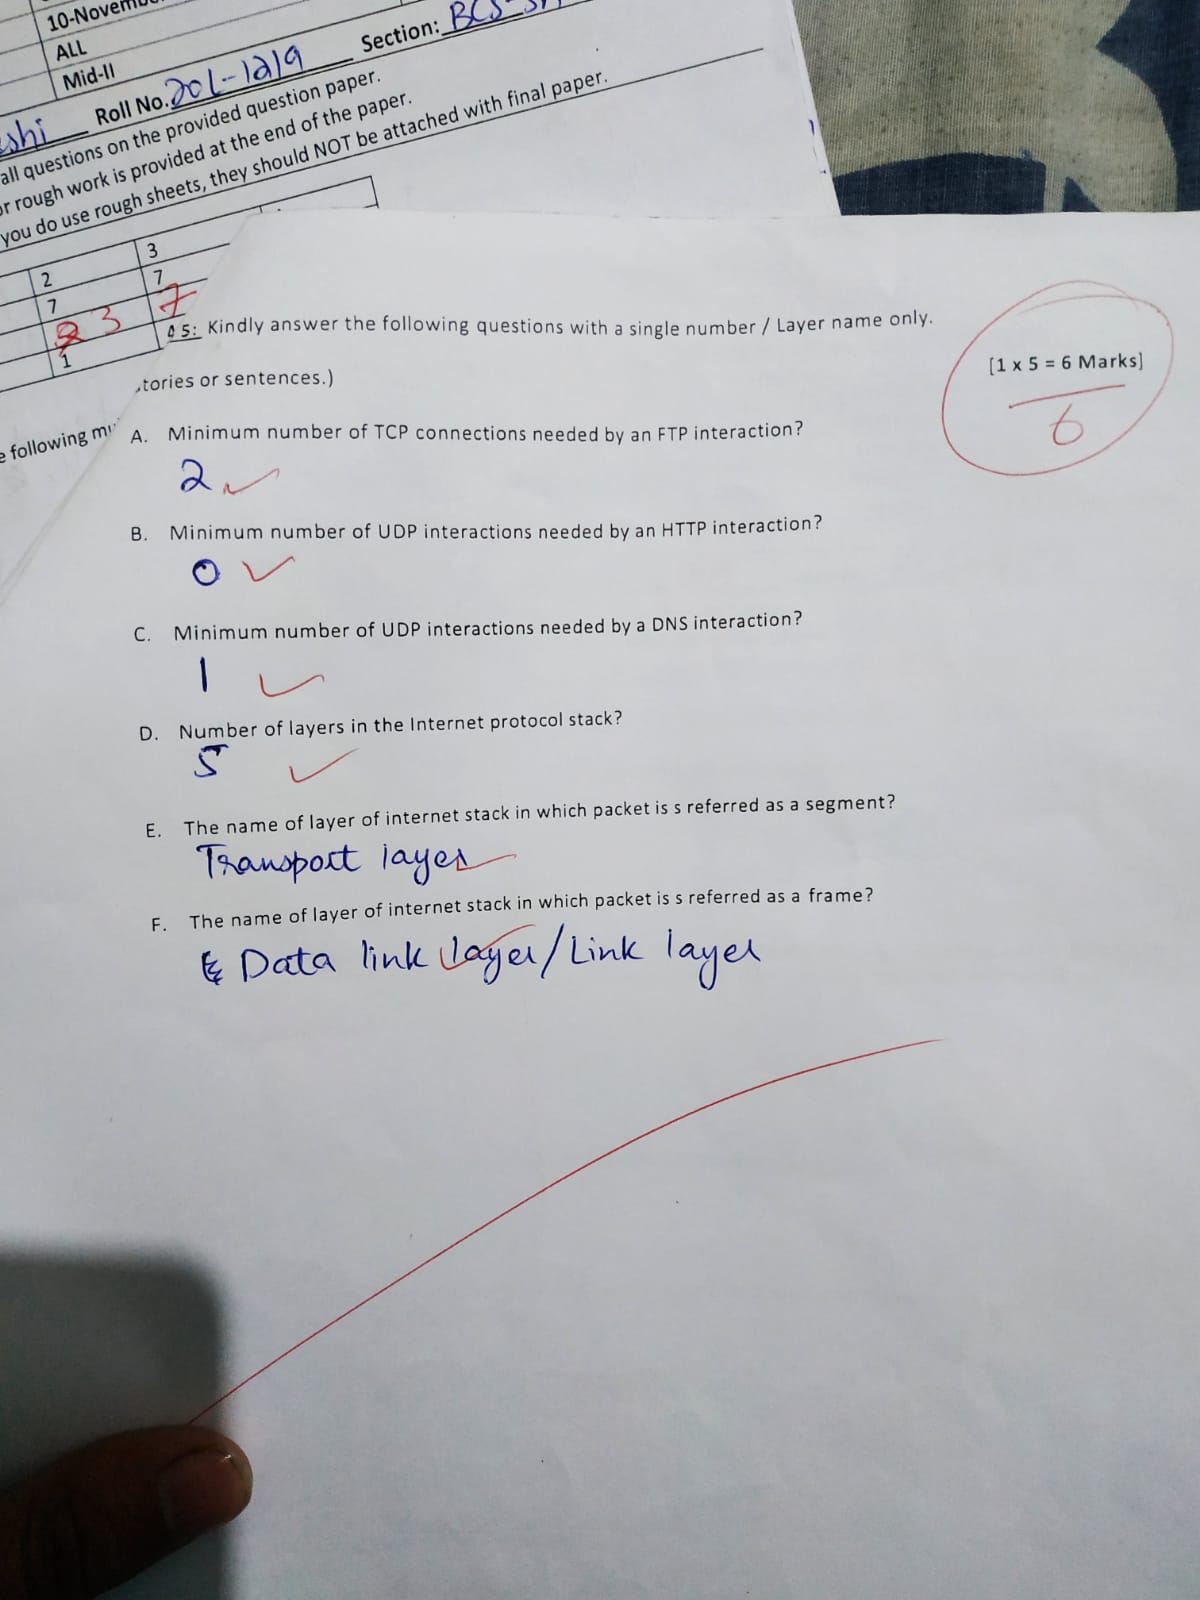 10-Novem
ALL
Mid-II
Roll No. 20L-1219 Section: BCS-5
all questions on the provided question paper.
or rough work is provided at the end of the paper.
you do use rough sheets, they should NOT be attached with final paper.
2 3
7 7
3 7
1
5: Kindly answer the following questions with a single number / Layer name only.
[1 x 5 = 6 Marks]
6
tories or sentences.)
e following mu
A. Minimum number of TCP connections needed by an FTP interaction?
2
B. Minimum number of UDP interactions needed by an HTTP interaction?
0
C. Minimum number of UDP interactions needed by a DNS interaction?
1
D. Number of layers in the Internet protocol stack?
5
E. The name of layer of internet stack in which packet is s referred as a segment?
Transport layer
F. The name of layer of internet stack in which packet is s referred as a frame?
Data link layer/Link layer